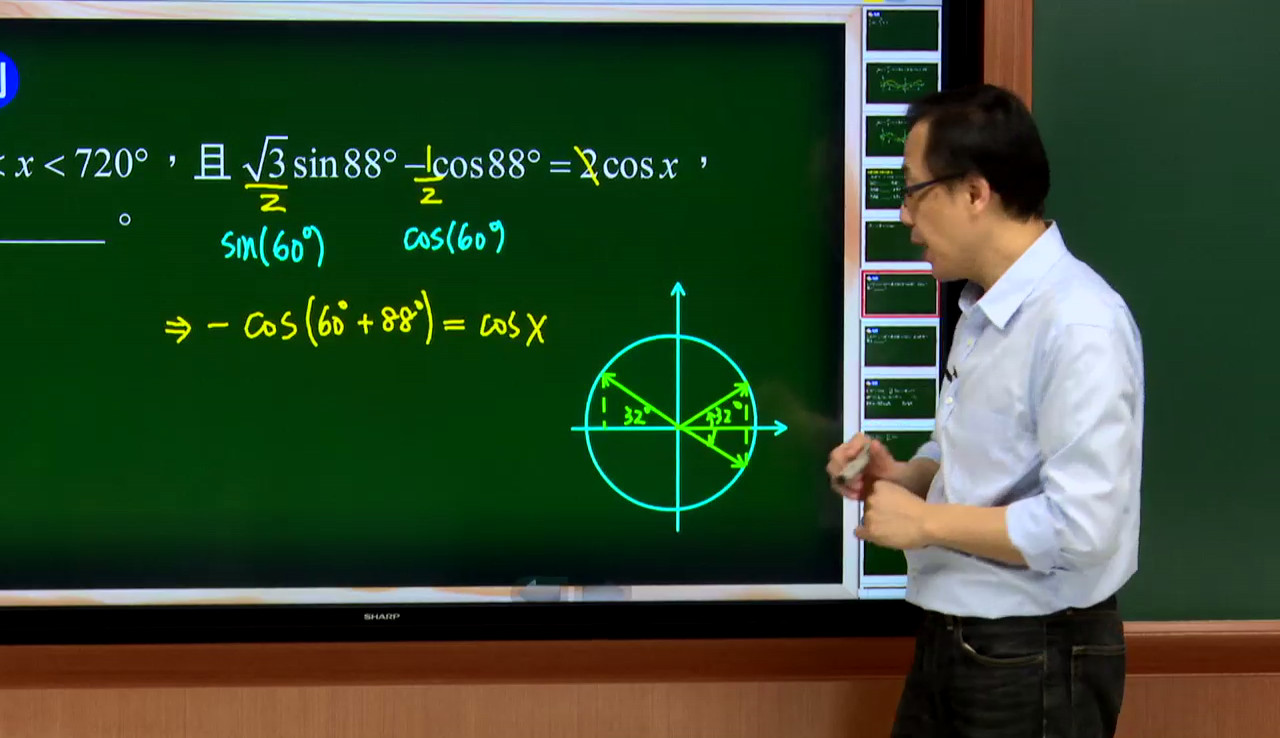 < x < 720°,且 √3 sin88° -1cos88° = 2cos x,
2 2
°
sin(60°) cos(60°)
⇒ - cos(60° + 88°) = cos x
32° 32°
SHARP